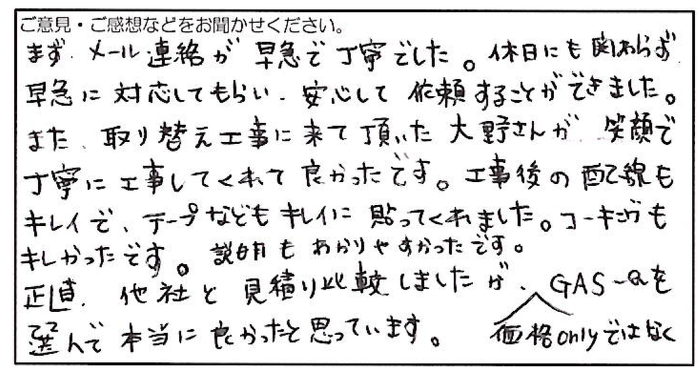 ご意見・ご感想などをお聞かせください。
まず、メール連絡が早急で丁寧でした。休日にも関わらず
早急に対応してもらい、安心して依頼することができました。
また、取り替え工事に来て頂いた大野さんが、笑顔で
丁寧に工事してくれて良かったです。工事後の配線も
キレイで、テープなどもキレイに貼ってくれました。コーキングも
キレかったです。説明もわかりやすかったです。
正直、他社と見積り比較しましたが、GAS-Qを
選んで本当に良かったと思っています。 価格onlyではなく